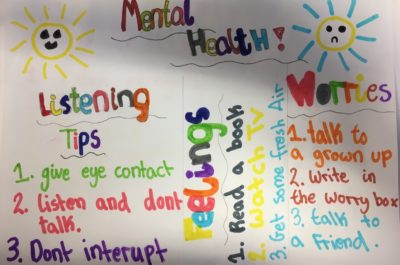 Mental
Health!
Listening
Tips
1. give eye contact
2. listen and dont
talk.
3. Dont interupt
Feelings
1. Read a book
2. Watch TV
3. Get some fresh Air
Worries
1. talk to
a grown up
2. Write in
the worry box
3. talk to
a friend.